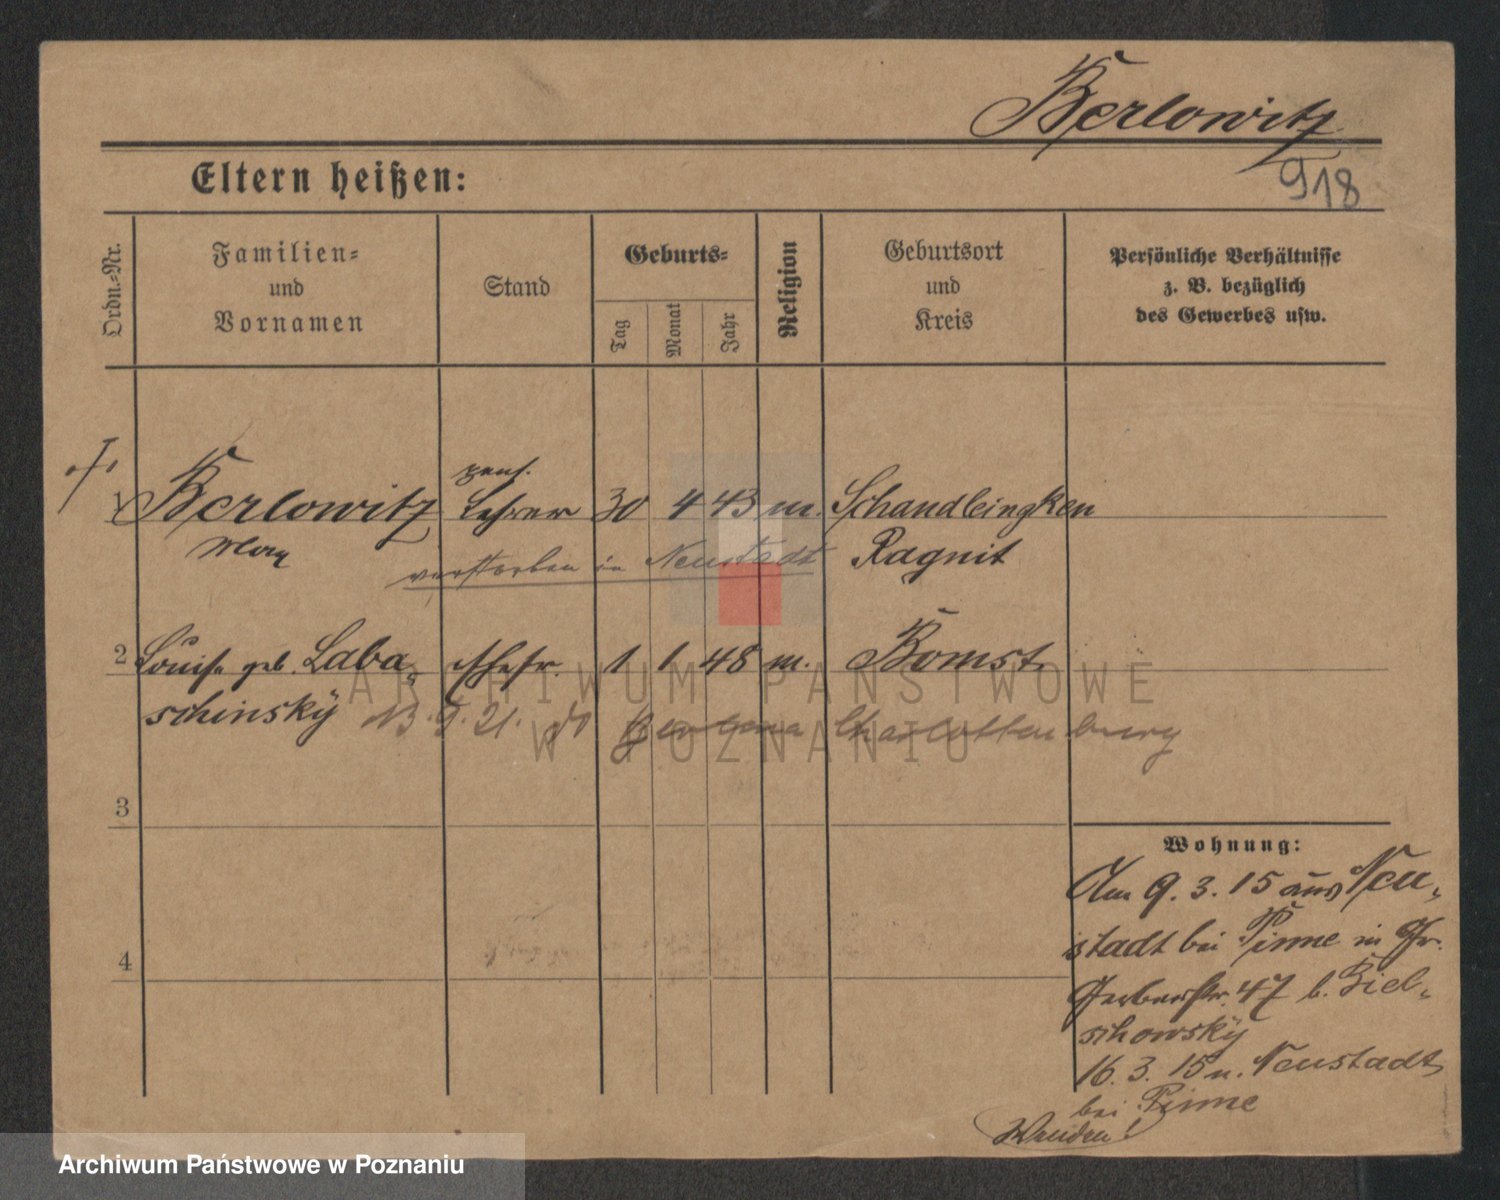 Berlowitz
918
Eltern heißen:
Ordn.-Nr.
Familien-
und
Vornamen
Stand
Geburts-
Tag
Monat
Jahr
Religion
Geburtsort
und
Kreis
Persönliche Verhältnisse
z. B. bezüglich
des Gewerbes usw.
pens.
1 Berlowitz Lehrer 30 4 43 m. Schandleingken
verstorben in Neustadt Ragnit
2 Louise geb. Laba- Ehefr. 1 1 48 m. Bomst
schinsky 13. 9. 21. Charlottenburg
3
4
Wohnung:
Am 9. 3. 15 aus Neu-
stadt bei Pinne in Gr.
Gerberstr. 47 b. Biel-
schowsky
16. 3. 15 n. Neustadt
bei Pinne
Wenden!
ARCHIWUM PAŃSTWOWE
W POZNANIU
Archiwum Państwowe w Poznaniu